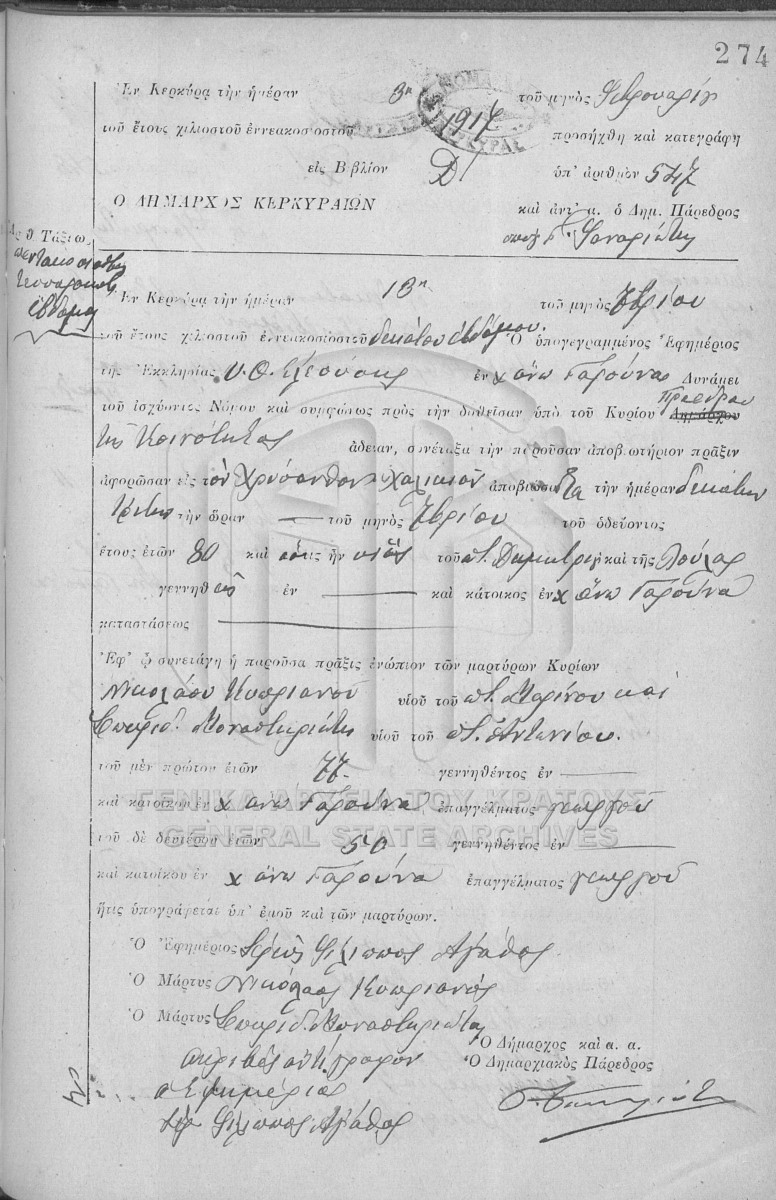 274
Ἐν Κερκύρᾳ τὴν ἡμέραν 3η τοῦ μηνὸς Φεβρουαρίου
τοῦ ἔτους χιλιοστοῦ ἐννεακοσιοστοῦ 1917 προσήχθη καὶ κατεγράφη
εἰς Βιβλίον Δ ὑπ' ἀριθμὸν 547
Ο ΔΗΜΑΡΧΟΣ ΚΕΡΚΥΡΑΙΩΝ
καὶ ἀντ' α. ὁ Δημ. Πάρεδρος
Ἀρ θ. Τάξεως
πεντακοσιοστὴ
τεσσαρακοστὴ
ἑβδόμη
Ἐν Κερκύρᾳ τὴν ἡμέραν 13η τοῦ μηνὸς
τοῦ ἔτους χιλιοστοῦ ἐννεακοσιοστοῦ δεκάτου ἑβδόμου. Ὁ ὑπογεγραμμένος Ἐφημέριος
τῆς Ἐκκλησίας Υ. Θ. Ἐλεούσης ἐν χ ἄνω Γαρούνα Δυνάμει
τοῦ ἰσχύοντος Νόμου καὶ συμφώνως πρὸς τὴν δοθεῖσαν ὑπὸ τοῦ Κυρίου Δημάρχου Προέδρου
τῆς Κοινότητος ἄδειαν, συνέταξα τὴν παροῦσαν ἀποβιωτήριον πρᾶξιν
ἀφορῶσαν εἰς τὸν Χρύσανθον ἀποβιώσαντα τὴν ἡμέραν δεκάτην
τρίτην τὴν ὥραν — τοῦ μηνὸς τοῦ ὁδεύοντος
ἔτους ἐτῶν 80 καὶ ὅστις ἦν υἱὸς τοῦ ποτ. Δημητρίου καὶ τῆς Λούλας
γεννηθεὶς ἐν — καὶ κάτοικος ἐν χ ἄνω Γαρούνα
καταστάσεως —
Ἐφ' ᾧ συνετάγη ἡ παροῦσα πρᾶξις ἐνώπιον τῶν μαρτύρων Κυρίων
Νικολάου Κυπριανοῦ υἱοῦ τοῦ ποτ. Μαρίνου καὶ
Σπυρίδ. Μοναστηριώτη υἱοῦ τοῦ ποτ. Ἀντωνίου.
τοῦ μὲν πρώτου ἐτῶν 77 γεννηθέντος ἐν —
καὶ κατοίκου ἐν χ ἄνω Γαρούνα ἐπαγγέλματος γεωργοῦ
ΓΕΝΙΚΑ ΑΡΧΕΙΑ ΤΟΥ ΚΡΑΤΟΥΣ
GENERAL STATE ARCHIVES
τοῦ δὲ δευτέρου ἐτῶν 50 γεννηθέντος ἐν —
καὶ κατοίκου ἐν χ ἄνω Γαρούνα ἐπαγγέλματος γεωργοῦ
ἥτις ὑπογράφεται ὑπ' ἐμοῦ καὶ τῶν μαρτύρων.
Ὁ Ἐφημέριος Ἱερεὺς Φίλιππος Ἀγάθος
Ὁ Μάρτυς Νικόλαος Κυπριανὸς
Ὁ Μάρτυς Σπυρίδ. Μοναστηριώτης
Ὁ Δήμαρχος καὶ α. α.
ἀκριβὲς ἀντίγραφον Ὁ Δημαρχιακὸς Πάρεδρος
ὁ Ἐφημέριος
Ἱερ Φίλιππος Ἀγάθος